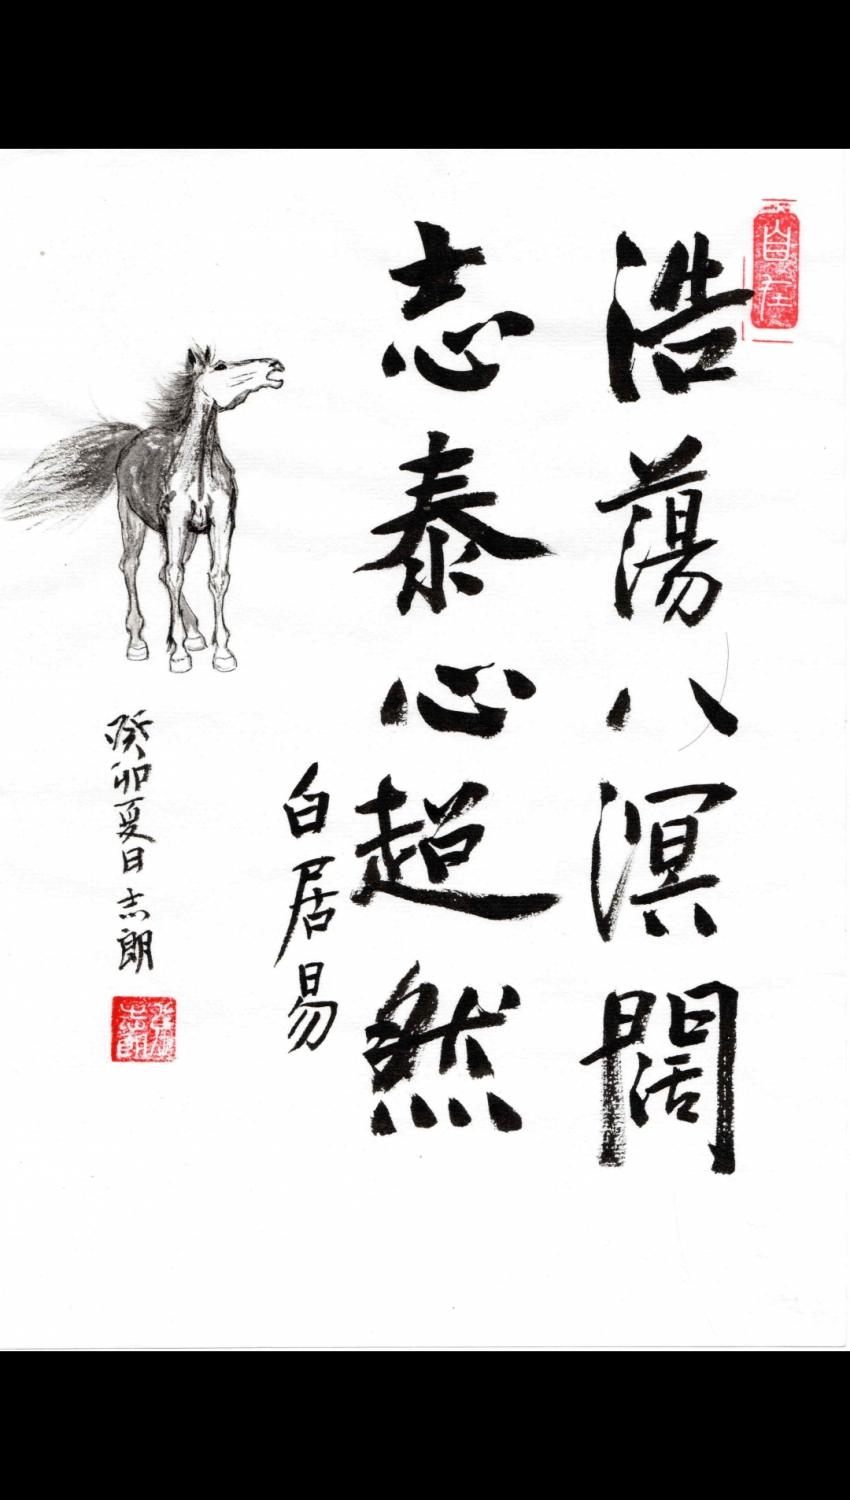 自在
浩蕩八溟闊
志泰心超然
白居易
癸卯夏日志朗